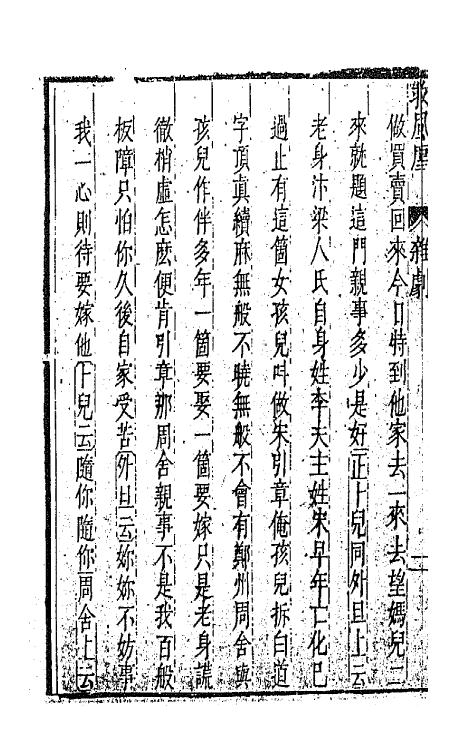 救風塵 雜劇 二
做買賣回來今日特到他家去一來去望媽兒二
來就題這門親事多少是好正卜兒同外旦上云
老身汴梁人氏自身姓李夫主姓宋早年亡化已
過止有這箇女孩兒叫做宋引章俺孩兒拆白道
字頂真續麻無般不曉無般不會有鄭州周舍與
孩兒作伴多年一箇要娶一箇要嫁只是老身謊
徹梢虛怎麽便肯引章那周舍親事不是我百般
板障只怕你久後自家受苦外旦云妳妳不妨事
我一心則待要嫁他卜兒云隨你隨你周舍上云